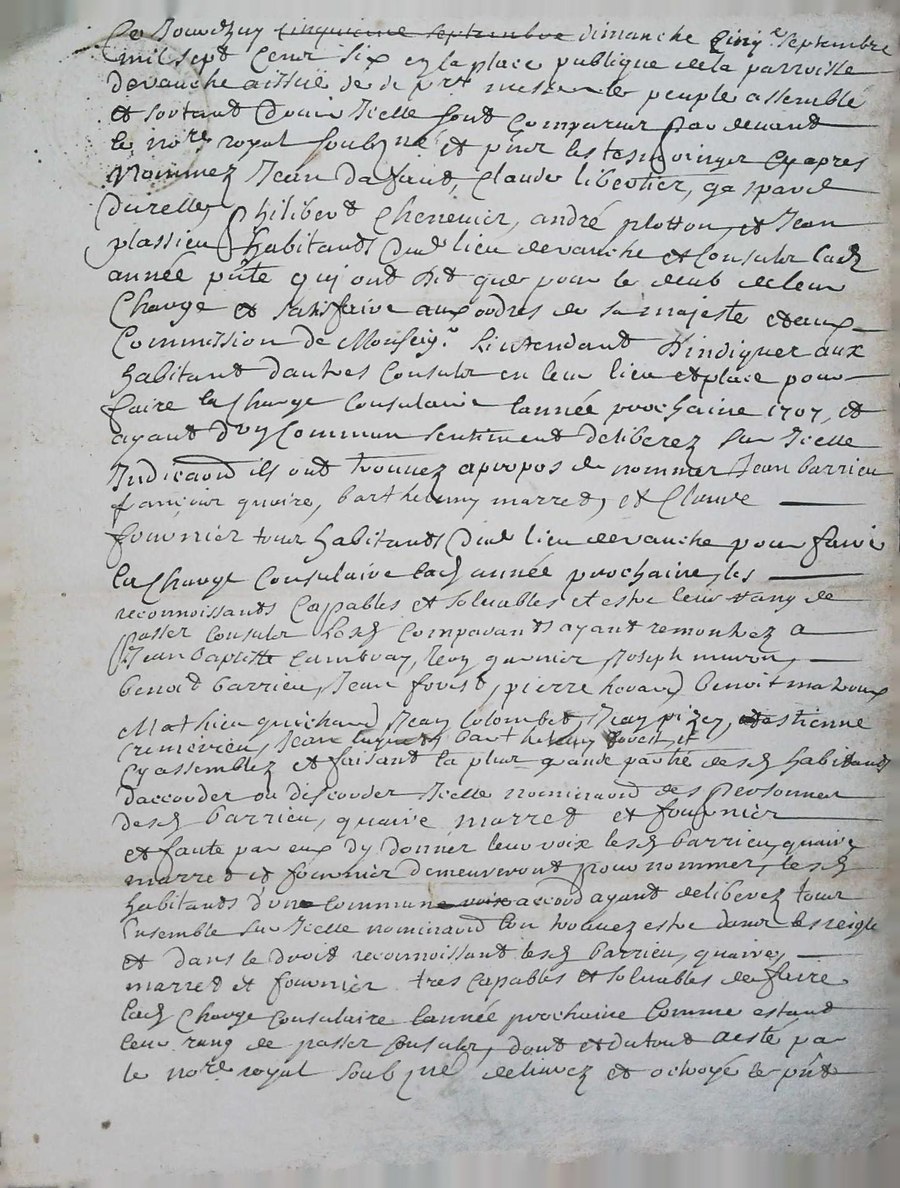 Ce Jourdhuy cinquieme septembre dimanche cinq.e septembre
mil sept Cent six en la place publique de la parroisse
devanche a lissüe de messe le peuple assemblé
et sortant d'icelle sont Comparus Par devant
le no.re royal soubz.né et pnts les tesmoingz Cy apres
Nommez Jean Dafaud, Claude libertier, gaspard
durelle, Philibert Chenevier, andré plotton, et Jean
plassieu habitants dud lieu devanche et Consulz lad
année pnte qui ont dit que pour le deub de leur
Charge et satisfaire aux ordres de sa majeste et aux
Commission de Monseig.r Lintendant D'indiquer aux
habitant dautres Consulz en leur lieu et place pour
faire la Charge Consulaire lannée prochaine 1707, et
ayant d'un Commun sentiment deliberez sur Icelle
Indicaon ils ont trouvez apropos de nommer Jean barrieu
françois quaire, barthelemy marret, et Claude
fournier tous habitants dud lieu devanche pour faire
la Charge Consulaire lad année prochaine, les
reconnoissants Capables et solvables et estre leur rang de
passer Consulz Lesd Comparants ayant remontrez a
Jean baptiste Cambray, garnier, Joseph muron,
benoit barrieu, Jean forest, pierre benoit mazoux
Mathieu guichard, Jean Colombet, Jean pizey, estienne
Cremerieu, Jean barthelemy
Cy assemblez et faisant la plus grande partie desd habitants
daccorder ou discorder Icelle nominaon des personnes
desd barrieu, quaire marret et fournier
et faute par eux dy donner leur voix lesd barrieu, quaire
marret et fournier demeureront pour nommez, lesd
habitants d'un commune voix accord ayant deliberez tous
Ensemble sur Icelle nominaon lon trouvez estre dans les reigle
et dans le droit reconnoissant lesd barrieu, quaire,
marret et fournier tres Capables et solvables de faire
lad Charge Consulaire lannée prochaine Comme estant
leur rang de passer Consulz, dont et dutout acte par
le no.re royal soubz.né delivrez et octroyé le pnt